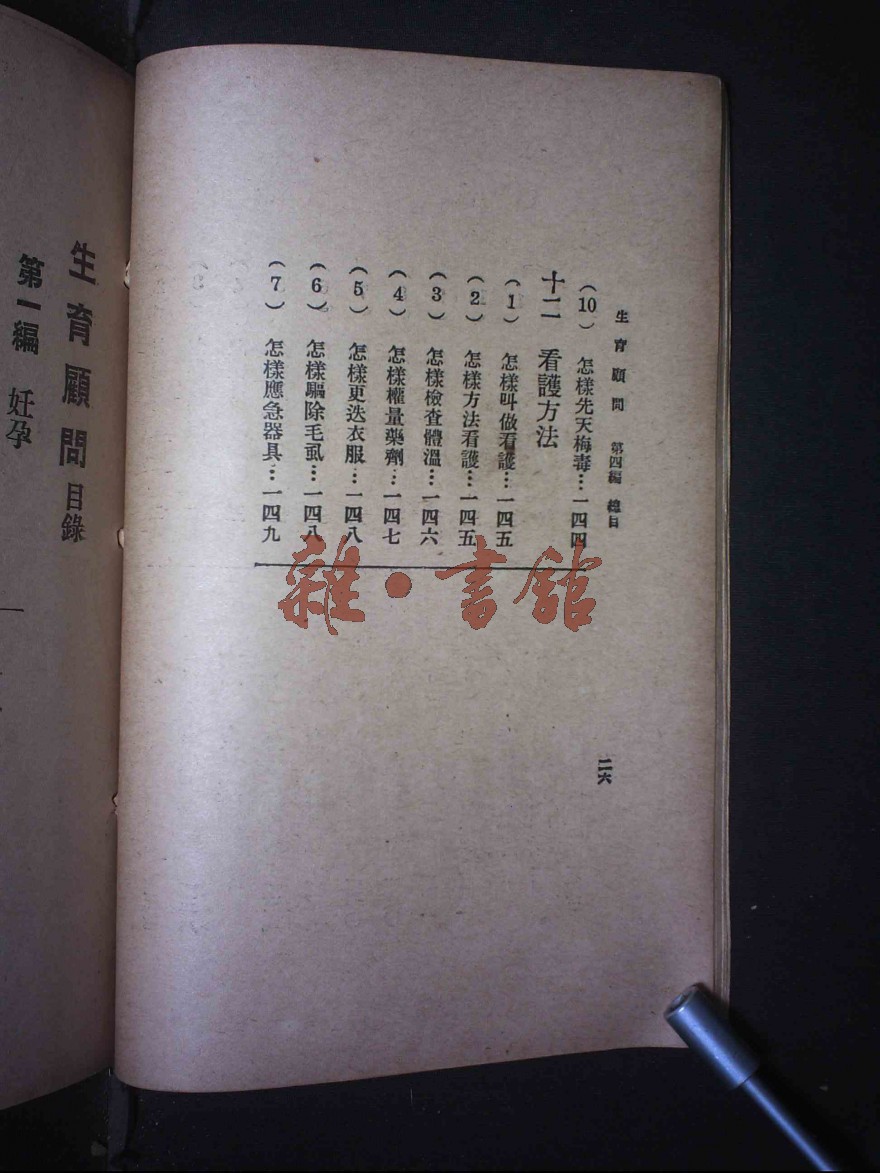 生育顧問 第四編 總目
(10) 怎樣先天梅毒…一四四
十二 看護方法
(1) 怎樣叫做看護…一四五
(2) 怎樣方法看護…一四五
(3) 怎樣檢查體溫…一四六
(4) 怎樣權量藥劑…一四七
(5) 怎樣更迭衣服…一四八
(6) 怎樣驅除毛虱…一四八
(7) 怎樣應急器具…一四九
二六
雜·書館
生育顧問目錄
第一編 妊孕